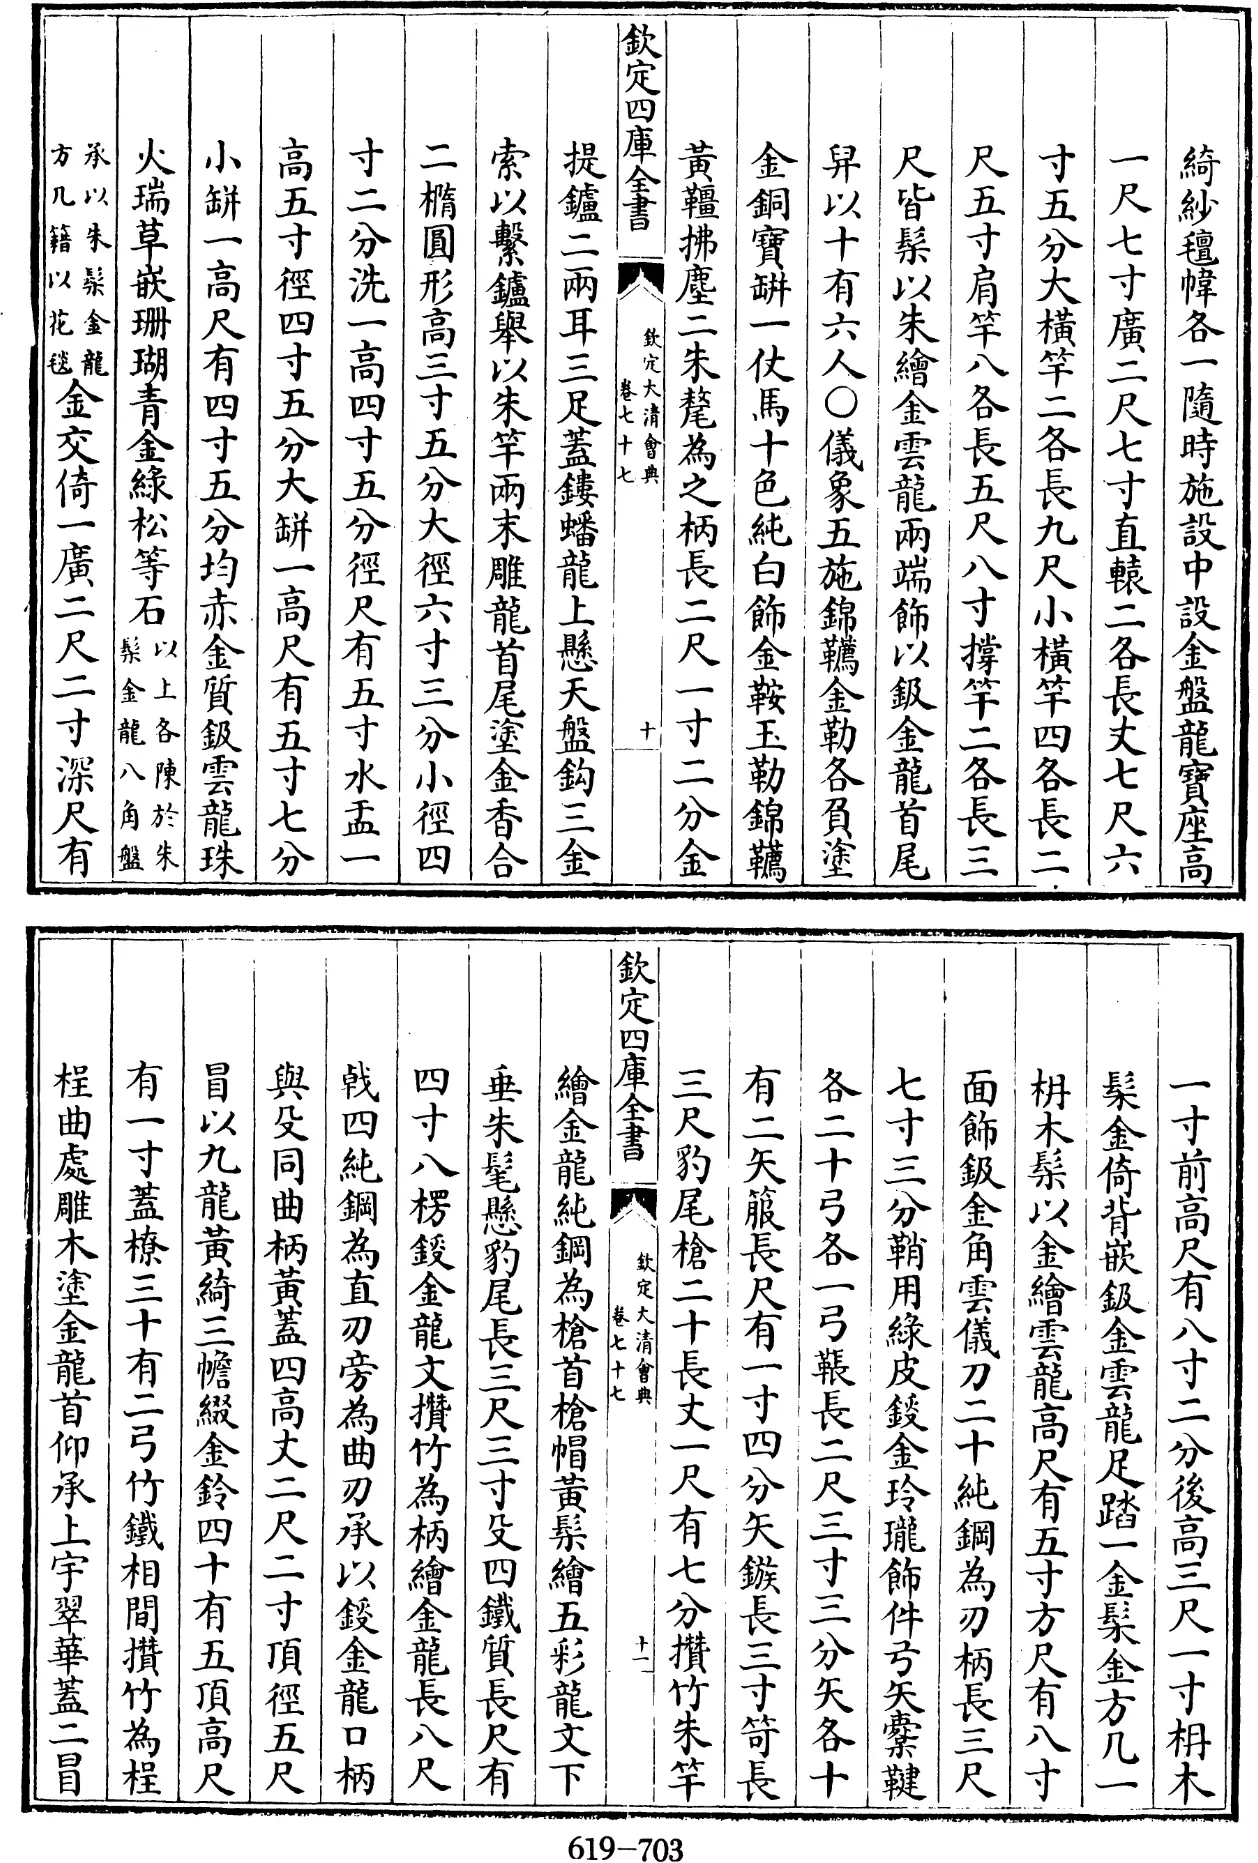 綺紗氊幃各一隨時施設中設金盤龍寶座高
一尺七寸廣二尺七寸直轅二各長丈七尺六
寸五分大橫竿二各長九尺小橫竿四各長二
尺五寸肩竿八各長五尺八寸撐竿二各長三
尺皆髹以朱繪金雲龍兩端飾以鈒金龍首尾
舁以十有六人○儀象五施錦韉金勒各負塗
金銅寶缾一仗馬十色純白飾金鞍玉勒錦韉
黃韁拂塵二朱氂為之柄長二尺一寸二分金
欽定四庫全書
欽定大清會典
卷七十七
十
提鑪二兩耳三足蓋鏤蟠龍上懸天盤鈎三金
索以繫鑪舉以朱竿兩末雕龍首尾塗金香合
二橢圓形高三寸五分大徑六寸三分小徑四
寸二分洗一高四寸五分徑尺有五寸水盂一
高五寸徑四寸五分大缾一高尺有五寸七分
小缾一高尺有四寸五分均赤金質鈒雲龍珠
火瑞草嵌珊瑚青金綠松等石以上各陳於朱
髹金龍八角盤
承以朱髹金龍
方几籍以花毯金交倚一廣二尺二寸深尺有
一寸前高尺有八寸二分後高三尺一寸枏木
髹金倚背嵌鈒金雲龍足踏一金髹金方几一
枏木髹以金繪雲龍高尺有五寸方尺有八寸
面飾鈒金角雲儀刀二十純鋼為刃柄長三尺
七寸三分鞘用綠皮鋄金玲瓏飾件弓矢櫜鞬
各二十弓各一弓韔長二尺三寸三分矢各十
有二矢箙長尺有一寸四分矢鏃長三寸笴長
三尺豹尾槍二十長丈一尺有七分攢竹朱竿
欽定四庫全書
欽定大清會典
卷七十七
十一
繪金龍純鋼為槍首槍帽黃髹繪五彩龍文下
垂朱髦懸豹尾長三尺三寸殳四鐵質長尺有
四寸八楞鋄金龍文攢竹為柄繪金龍長八尺
戟四純鋼為直刃旁為曲刃承以鋄金龍口柄
與殳同曲柄黃蓋四高丈二尺二寸頂徑五尺
冒以九龍黃綺三幨綴金鈴四十有五頂高尺
有一寸蓋橑三十有二弓竹鐵相間攢竹為桯
桯曲處雕木塗金龍首仰承上宇翠華蓋二冒
619-703